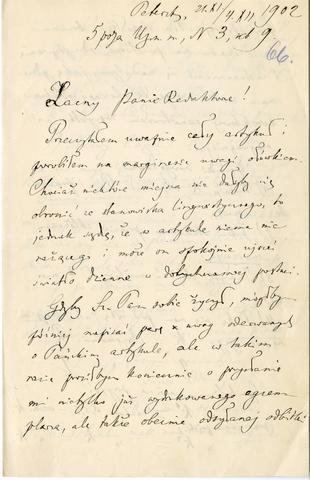 Petersb., 21.XI/4.XII 1902
5 рота Изм. п., N 3, кв 9.
66.
Zacny Panie Redaktorze!
Przeczytałem uważnie cały artykuł i
porobiłem na marginesie uwagi ołówkiem.
Chociaż niektóre miejsca nie dałyby się
obronić ze stanowiska lingwistycznego, to
jednak sądzę, że w artykule niema nic
rażącego i może on spokojnie ujrzeć
światło dzienne w dotychczasowej postaci.
Gdyby Sz. Pan sobie życzył, mógłbym
później napisać parę uwag
o Pańskim artykule, ale w takim
razie prosiłbym koniecznie o przysłanie
mi nietylko już wydrukowanego egzem-
plarza, ale także obecnie odsyłanej odbitki.